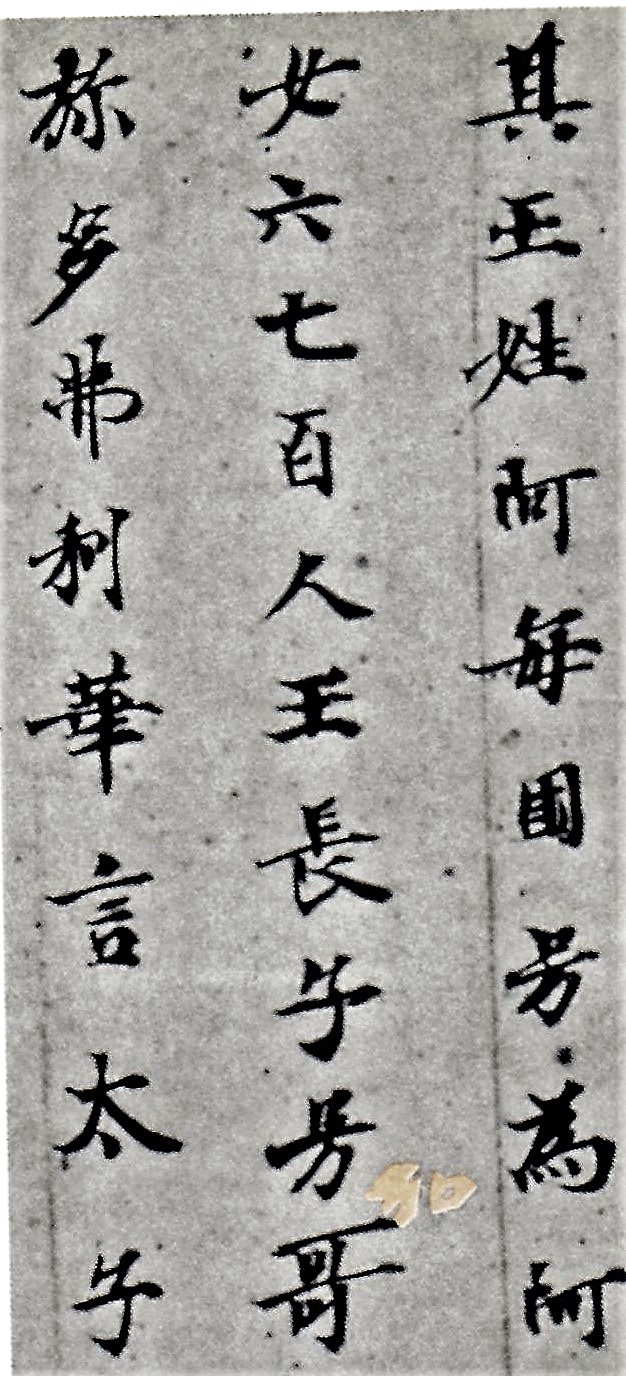 其王姓阿每国号為阿
女六七百人王長子号和哥
弥多弗利華言太子